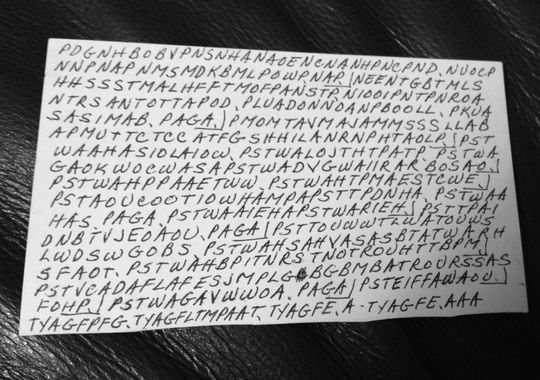 PDGNHBOBVPNSNHANAOENCNANHPNCPND. NUOCP
NNPNAPNMSMDKBMLPOWPNAP. NEENTGBTMLS
HHSSSTMALHFFTMOFPANSTP. NIOOIPNTPNROA
NTRSANTOTTAPOD. PLUADONNOANPBOOLL. PKUA
SASIMAB. PAGA. PMOMTAVMAJAMMSSSLLAB
APMUTTCTCC ATFGSHHILANRNPHTAOLR. PST
WAAHASIOLAIOW. PSTWALOJTHTPATP. PSTWA
GAOKWOCWASAPSTWADVGWAIIRAR BOSAO.
PSTWAHPPAAETWW. PSTWAHTPMAESTCWE.
PSTAOUCOOTIOWHAMPAPSTTPDNHA. PSTWAA
HAS. PAGA. PSTWAAIEHAPSTWARIEH. PSTTPAY
DNBTVJEOAOU. PAGA. PSTTOUWWTTWATOUWS
LWDSWGOBS. PSTWAHSAHVASASBTATWARH
SFAOT. PSTWAHBPITNRSTNOTROUHTTBPM.
PSTVCADAFLAFESJMPLG BGBMBATROURSSAS
FOHP. PSTWAGAVWWOA. PAGA. PSTEIFFAWAOU.
TYAGFPFG. TYAGFLTMPAAT. TYAGFE. A-TYAGFE. AAA